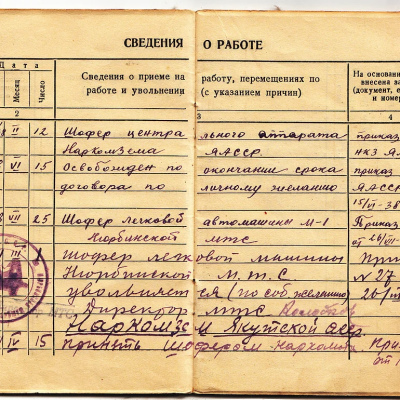 СВЕДЕНИЯ О РАБОТЕ
Дата
Сведения о приеме на работу, перемещениях по
работе и увольнении (с указанием причин)
На основании
внесена за
(документ, е
и номер
Месяц
Число
2 3 4
II 12 Шофер центрального аппарата приказ
Наркомзема ЯАССР. НКЗ ЯА
VI 15 Освобожден по окончании срока приказ
договора по личному желанию ЯАССР
15/VI-38
VII 25 Шофер легковой автомашины М-1 Приказ
Нюрбинской МТС
III шофер легковой машины
Нюрбинской М.Т.С. N 27
увольняется (по соб. желанию)
Директор МТС
Наркомзем Якутской АССР
IV 15 принять шофером Наркомзема При